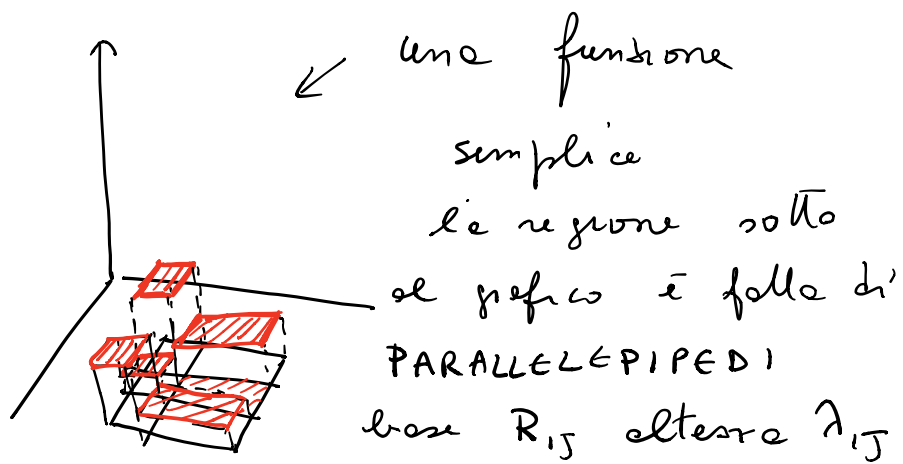 una funzione
semplice
la regione sotto
al grafico è fatta di
PARALLELEPIPEDI
base R_IJ altezza λ_IJ